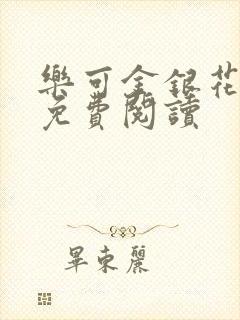 樂可金銀花
免費閱讀
畢東麗